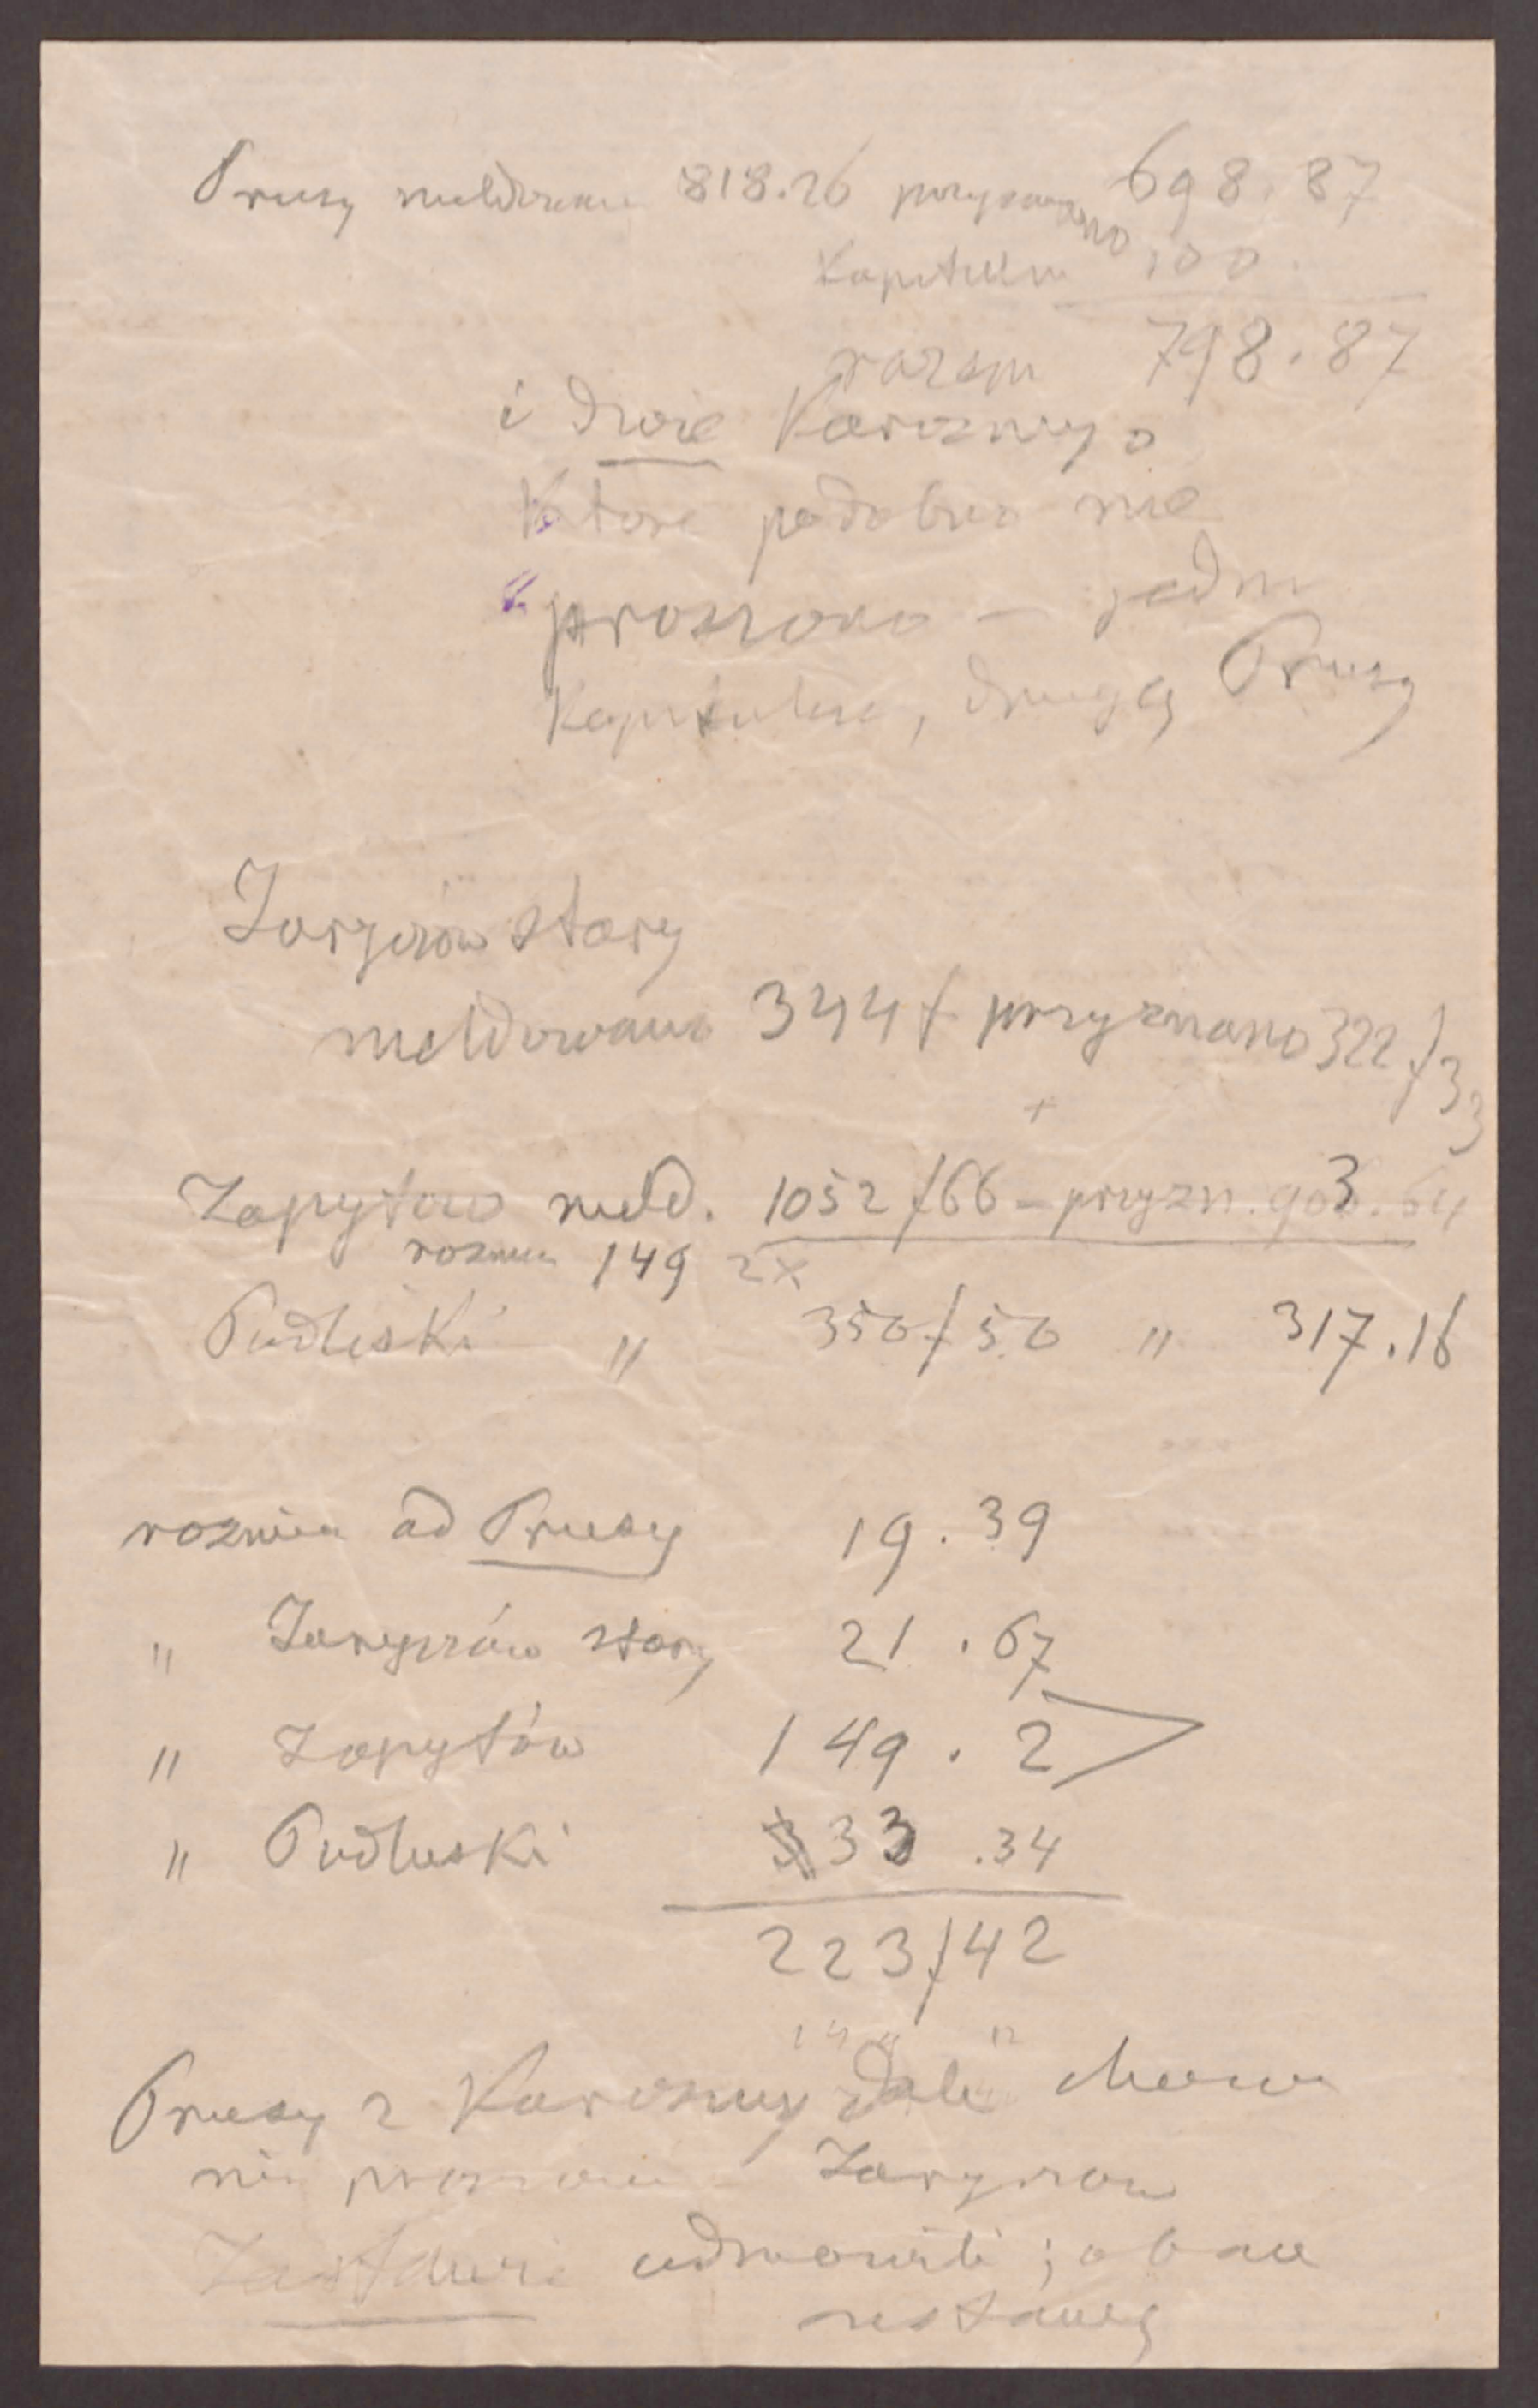 Prusy meldowano 818.26 przyznano 698.87
Kapitulna 100.
razem 798.87
i dwie Karczmy o
Które podobno nie
" proszono — jedna
Kapitulna, drugą Prusy
Jaryczów stary
meldowano 344 f przyznano 322 f 33
+
Zapytów meld. 1052 f 66 – przyzn. 903.64
roznica 149 2 x
Pudłuski " 350 f 50 " 317.16
roznica od Prusy 19.39
" Jaryczów stary 21.67
" Zapytów 149.2
" Pudłuski 33.34
223 f 42
Prusy z Karczmy dali
nie Jaryczow
odmowili ; obaw